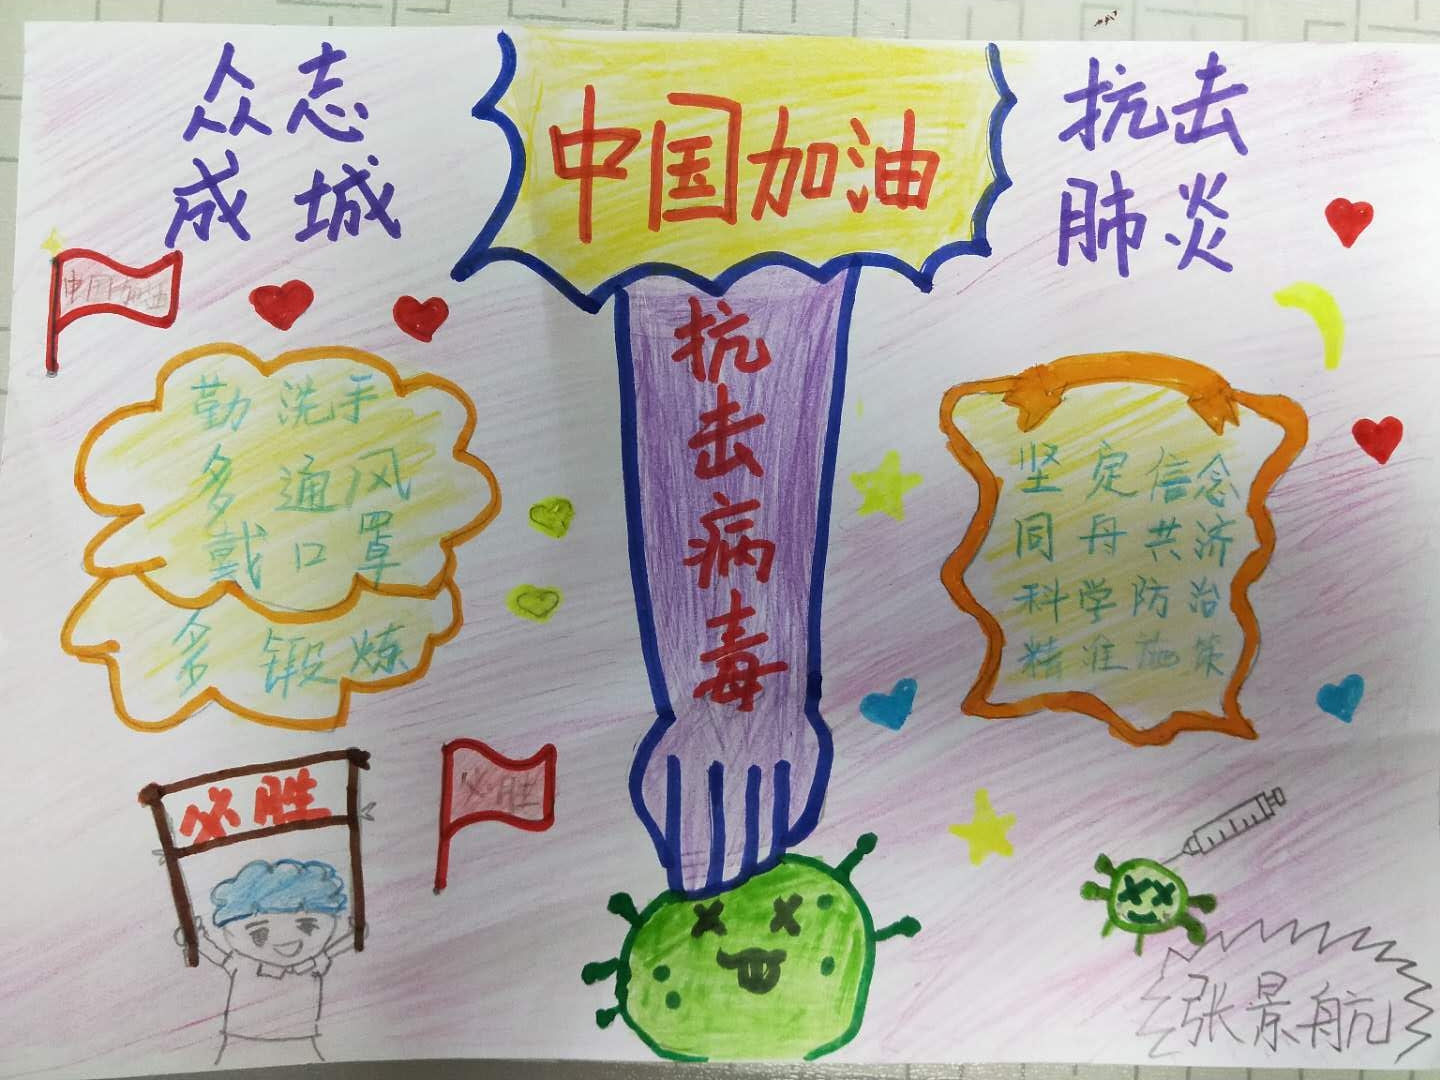 众志
成城
中国加油
抗击
肺炎
中国加油
抗击病毒
勤洗手
多通风
戴口罩
多锻炼
坚定信念
同舟共济
科学防治
精准施策
必胜
必胜
张景航